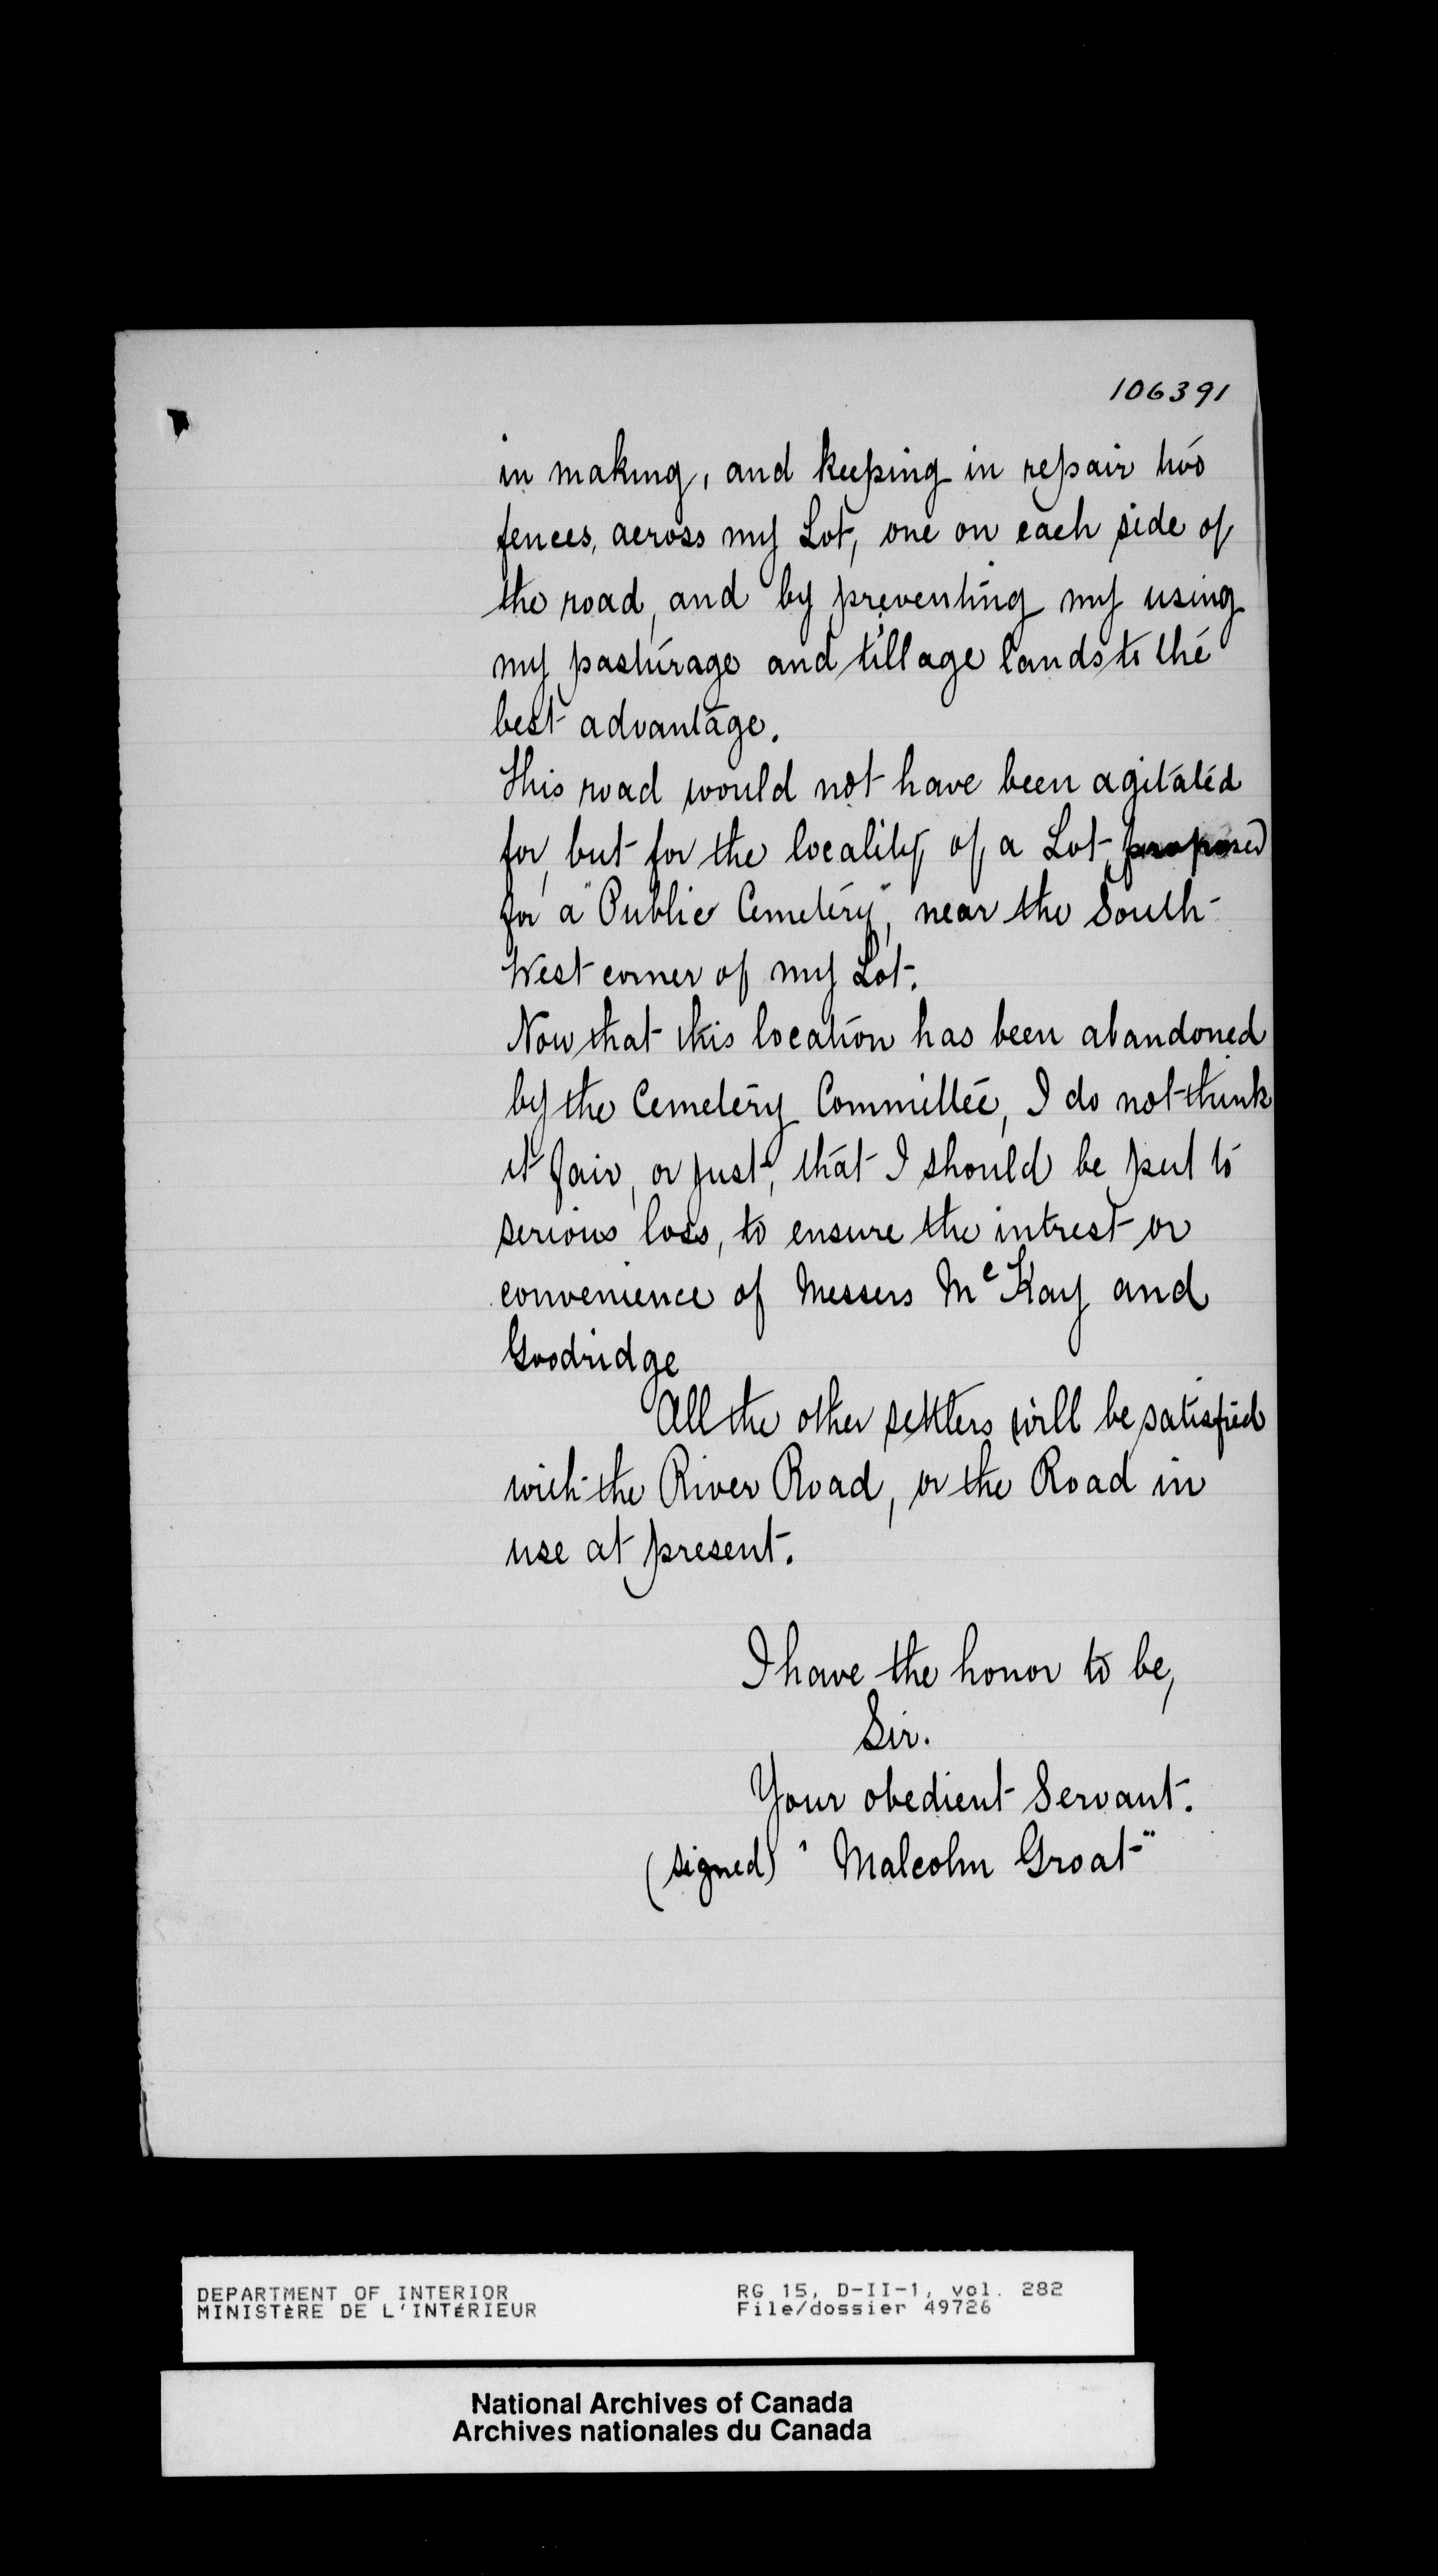 106391
in making, and keeping in repair two
fences, across my Lot, one on each side of
the road, and by preventing my using
my pasturage and tillage lands to the
best advantage.
This road would not have been agitated
for, but for the locality of a Lot, proposed
for a "Public Cemetery", near the South-
West corner of my Lot.
Now that this location has been abandoned
by the Cemetery Committee, I do not think
it fair, or just, that I should be put to
serious loss, to ensure the intrest or
convenience of Messers McKay and
Goodridge
All the other settlers will be satisfied
with the River Road, or the Road in
use at present.
I have the honor to be,
Sir.
Your obedient Servant.
(signed) "Malcolm Groat"
DEPARTMENT OF INTERIOR RG 15, D-II-1, vol. 282
MINISTÈRE DE L'INTÉRIEUR File/dossier 49726
National Archives of Canada
Archives nationales du Canada